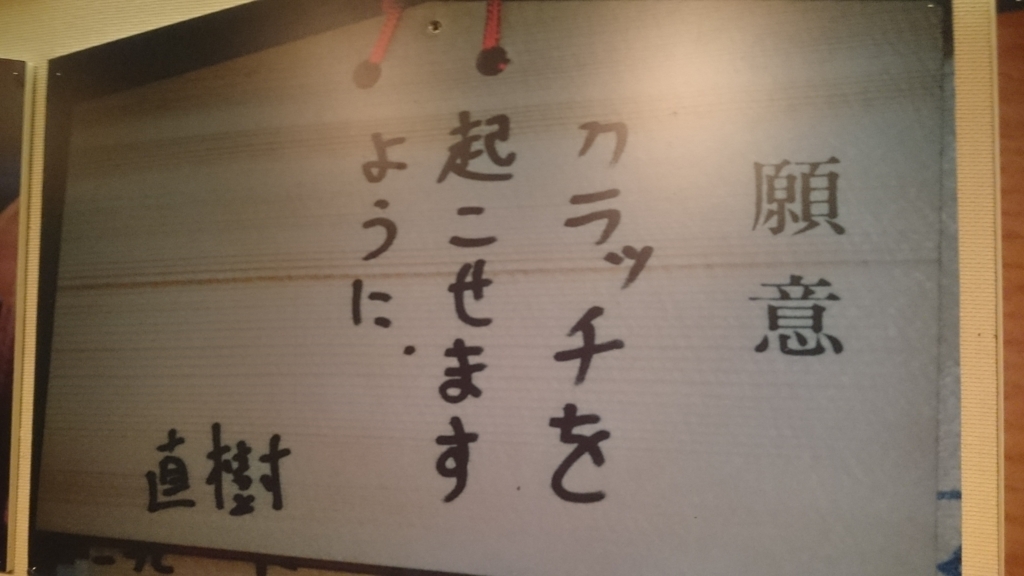 願意
クラッチを
起こせます
ように.
直樹